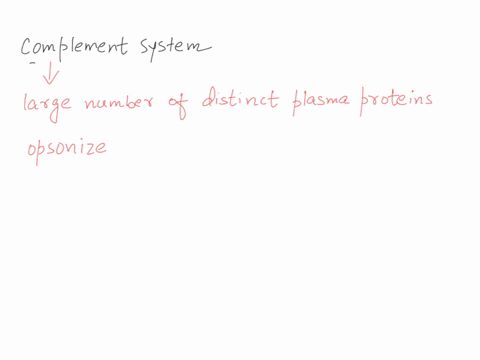 Complement system
large number of distinct plasma proteins
opsonize